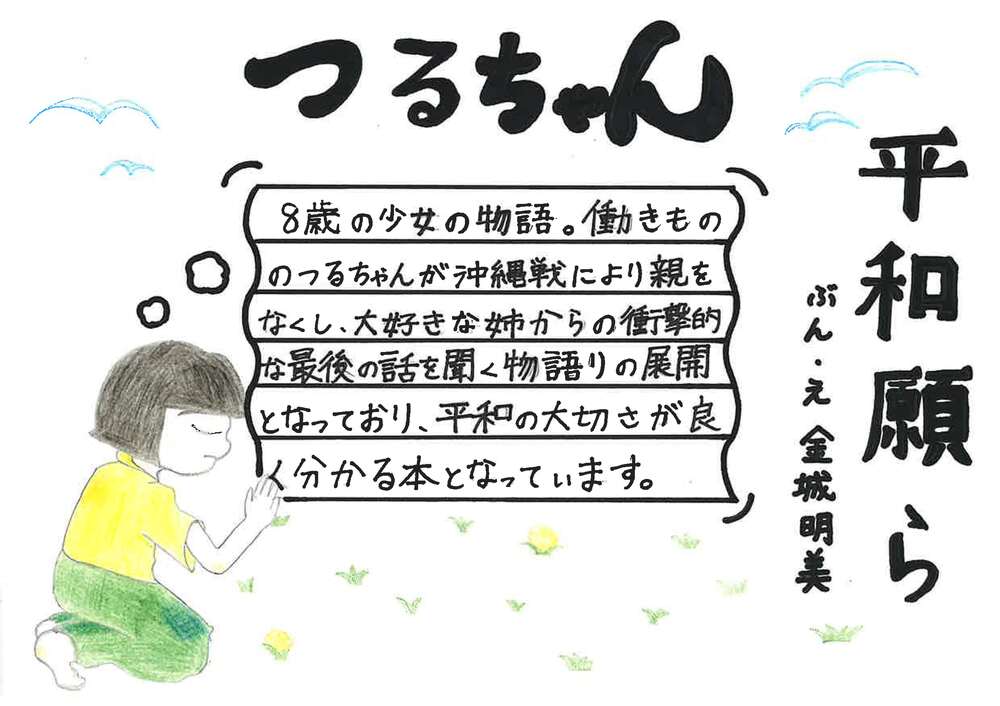 つるちゃん
平和願ら
ぶん・え 金城明美
8歳の少女の物語。働きもの
のつるちゃんが沖縄戦により親を
なくし、大好きな姉からの衝撃的
な最後の話を聞く物語りの展開
となっており、平和の大切さが良
く分かる本となっています。